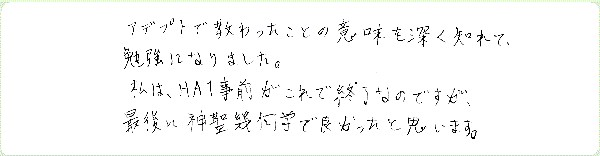 アデプトで教わったことの意味を深く知れて、
勉強になりました。
私は、HAT事前がこれで終了なのですが、
最後に神聖幾何学で良かったと思います。